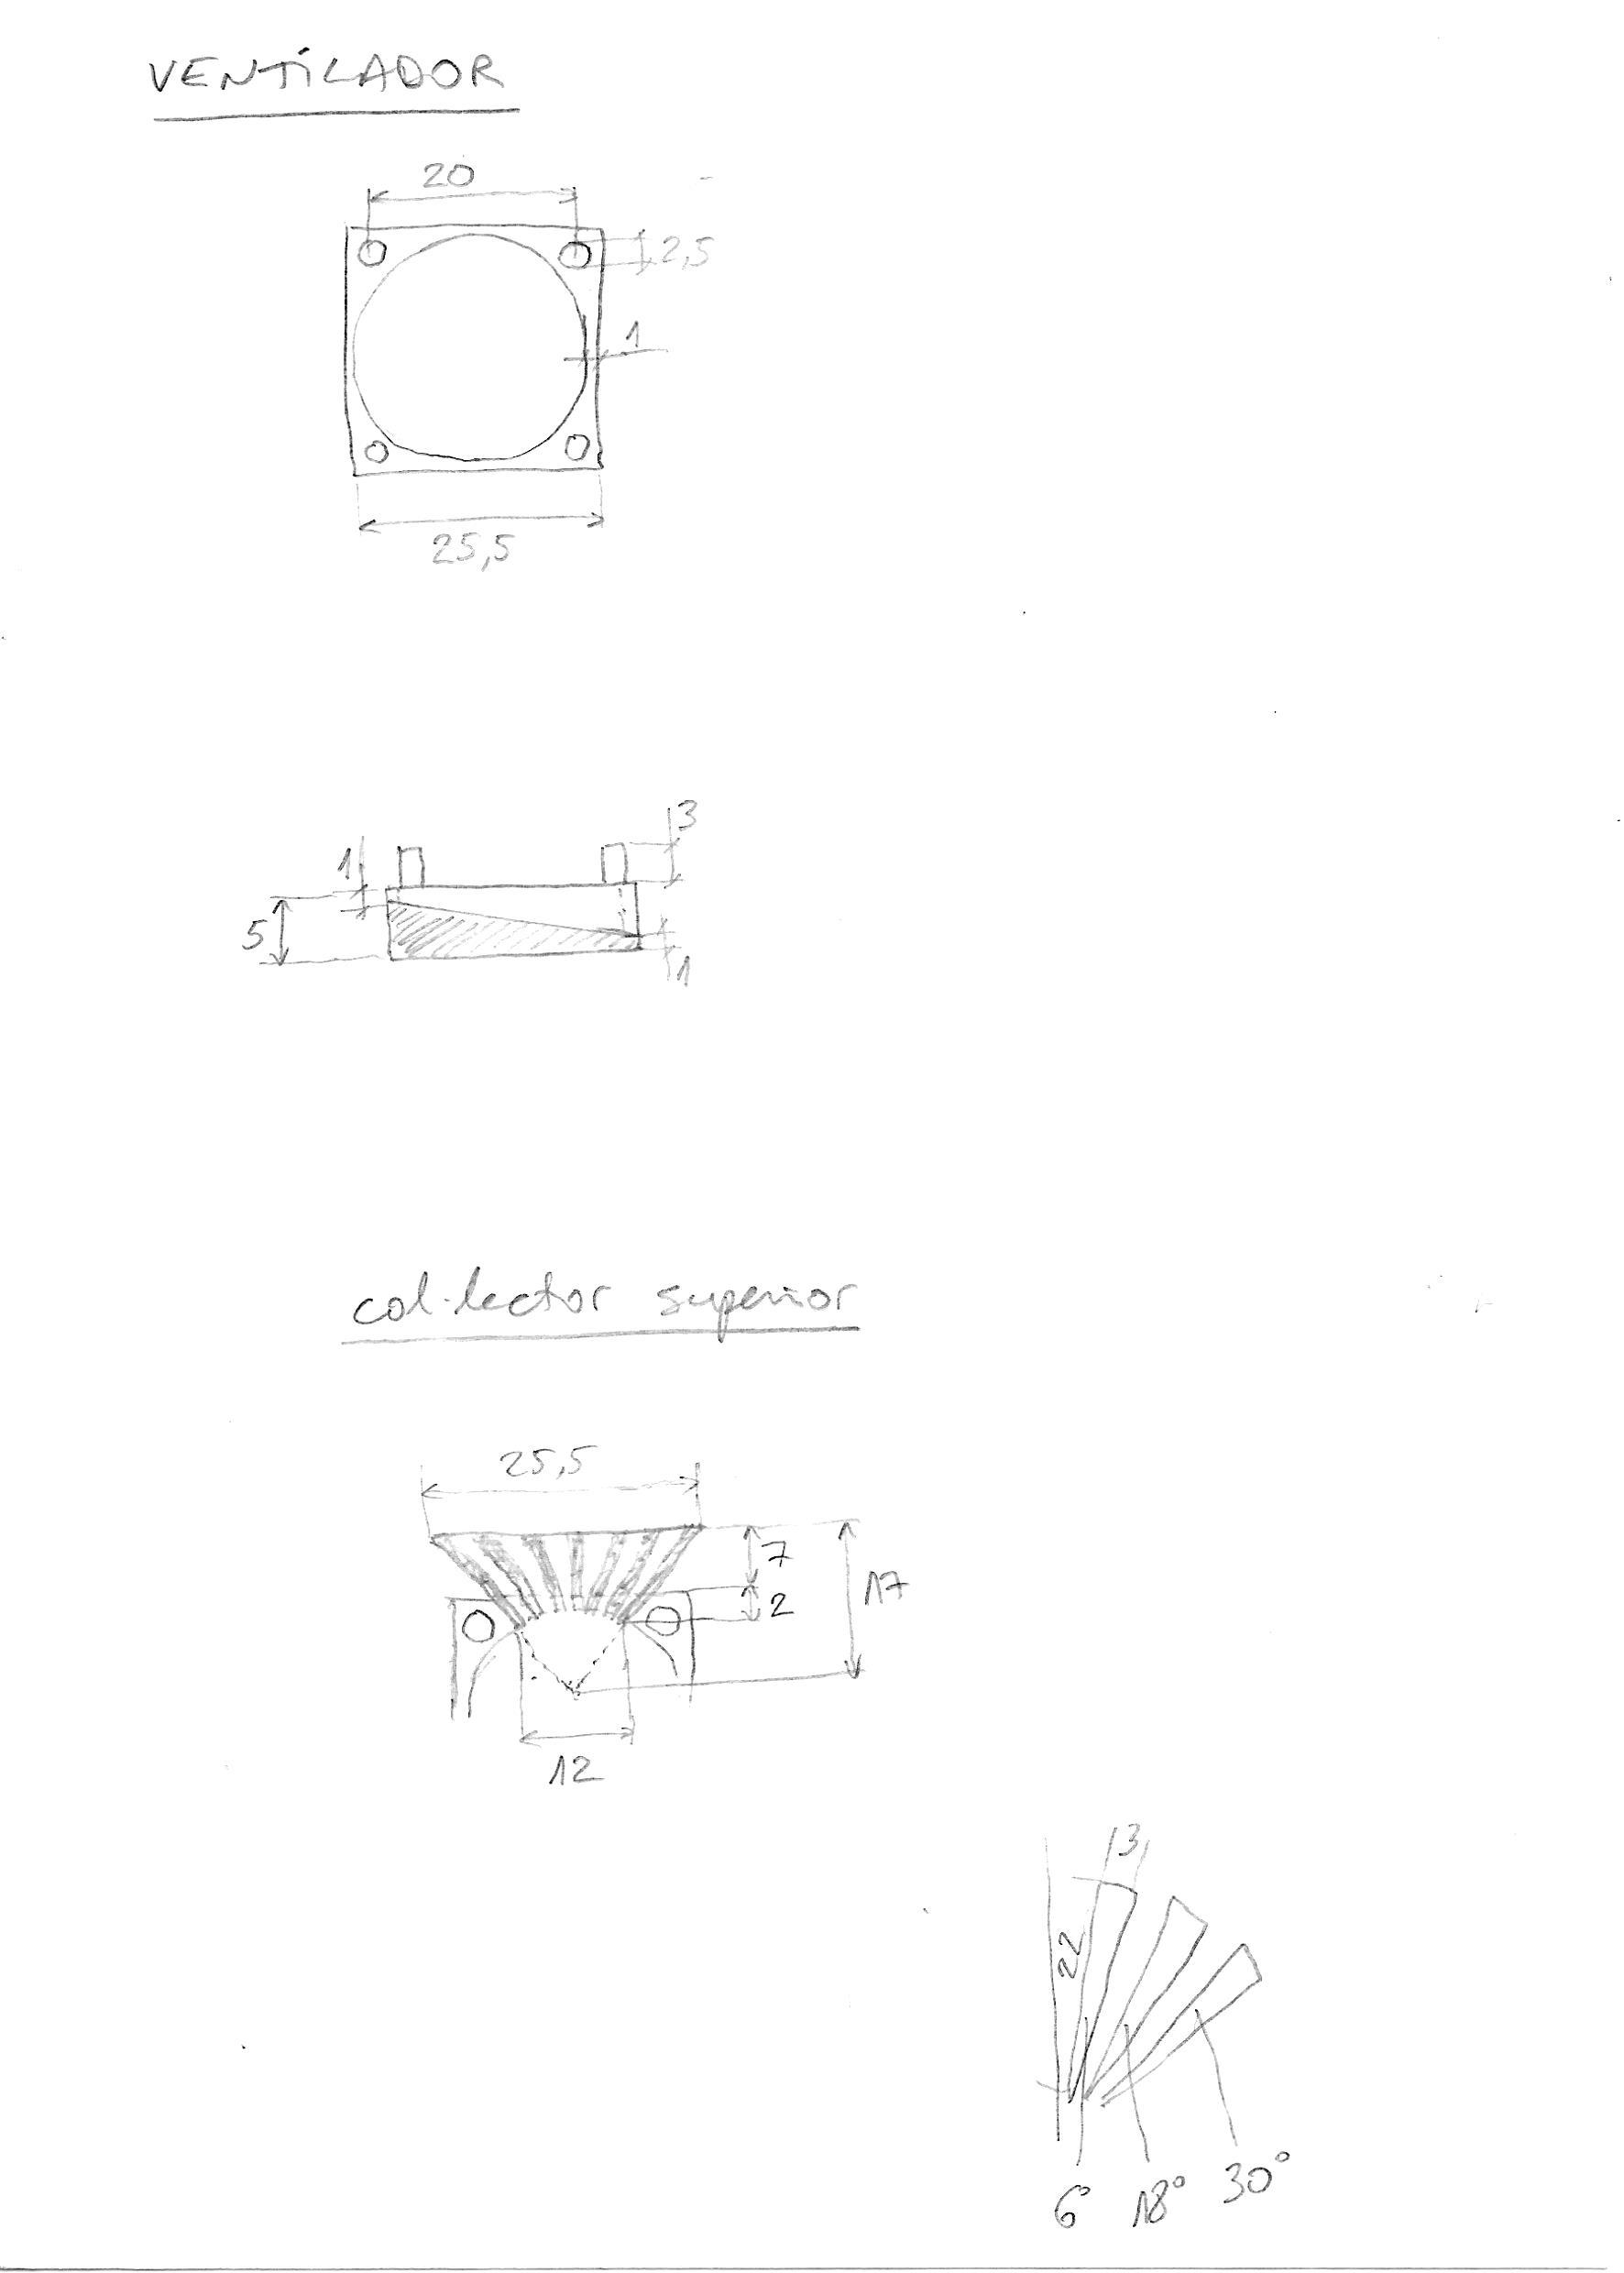 VENTILADOR
20
2,5
1
25,5
3
1
5
1
col·lector superior
25,5
7
2
17
12
3
22
6° 18° 30°